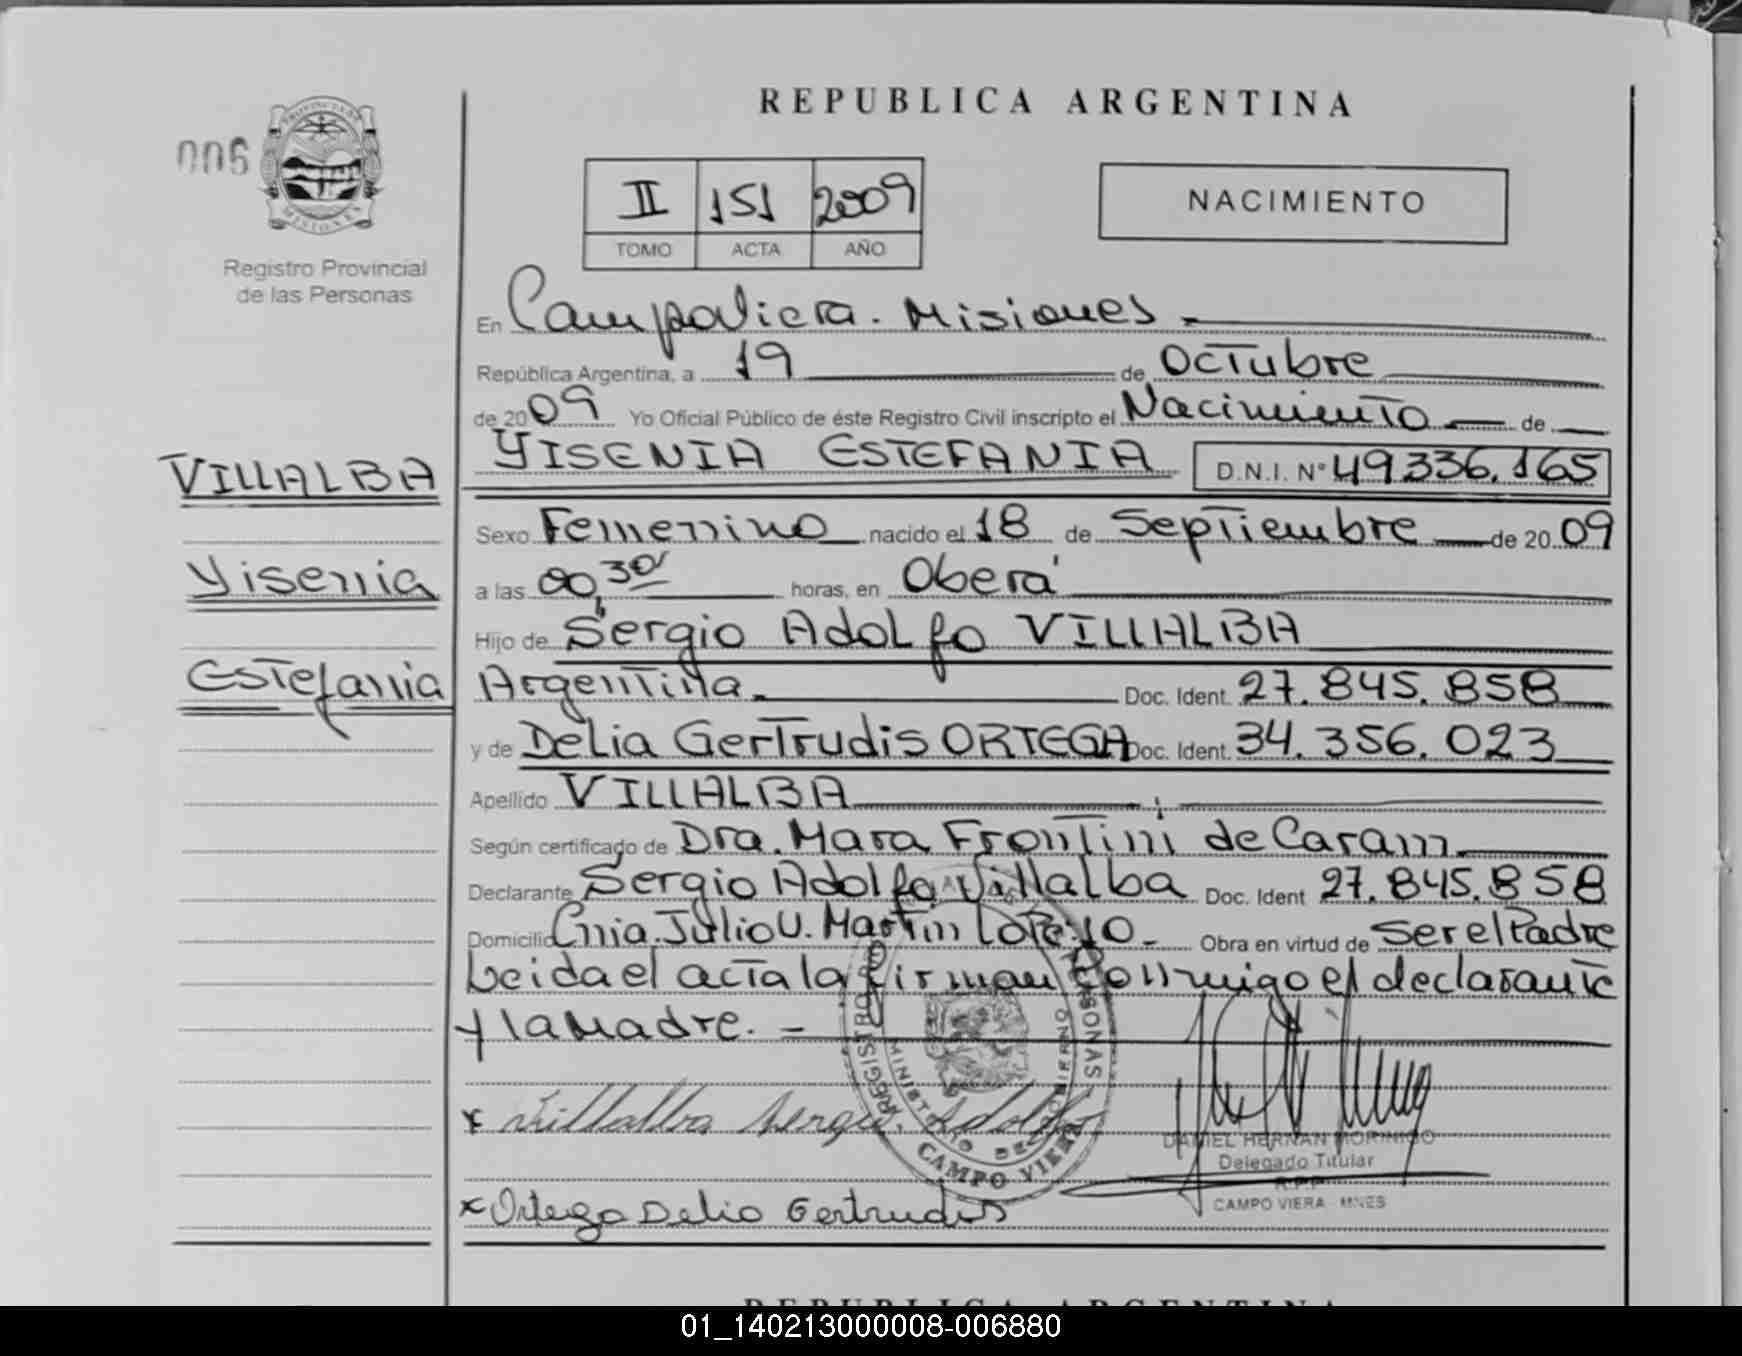 REPUBLICA ARGENTINA
006
PROVINCIA DE MISIONES
Registro Provincial
de las Personas
II 151 2009
TOMO ACTA AÑO
NACIMIENTO
En Campo Viera. Misiones
República Argentina, a 19 de Octubre
de 2009 Yo Oficial Público de éste Registro Civil inscripto el Nacimiento de
VILLALBA
YISENIA ESTEFANIA D.N.I. N° 49336.165
Sexo Femenino nacido el 18 de Septiembre de 20 09
Yisenia
a las 00,30 horas, en Oberá
Hijo de Sergio Adolfo VILLALBA
Estefania
Argentina Doc. Ident. 27.845.858
y de Delia Gertrudis ORTEGA Doc. Ident. 34.356.023
Apellido VILLALBA
Según certificado de Dra. Mara Frontini de Caram
Declarante Sergio Adolfo Villalba Doc. Ident 27.845.858
Domicilio Cnia. Julio U. Martin Lote 10.- Obra en virtud de Ser el Padre
Leida el acta la firman conmigo el declarante
y la Madre. -
REGISTRO PERSONAS
MINISTERIO DE GOBIERNO
CAMPO VIERA
x Villalba Sergio Adolfo
DANIEL HERNAN MORINIGO
Delegado Titular
R.P.P
CAMPO VIERA MNES
x Ortega Delia Gertrudis
REPUBLICA ARGENTINA
01_140213000008-006880